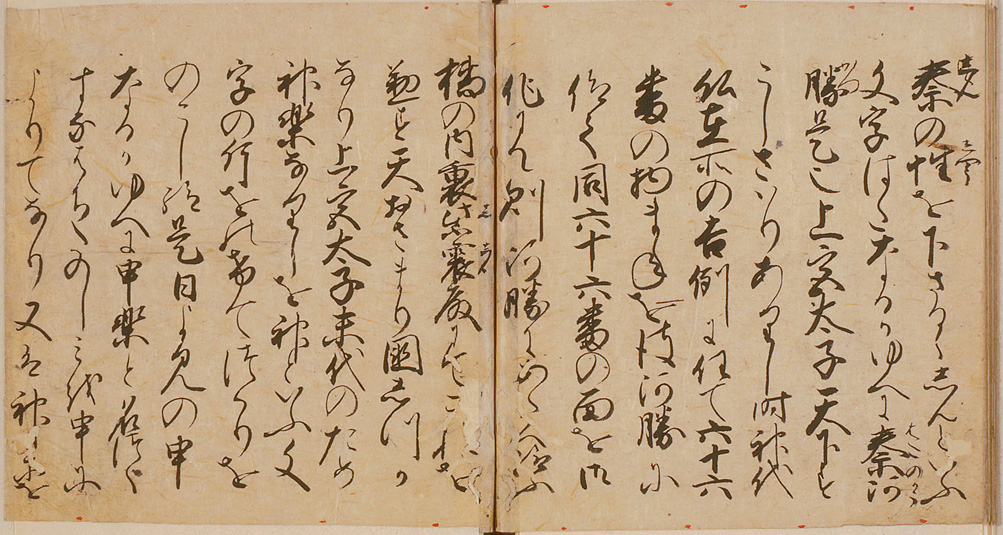 秦の姓を下さるゝしんといふ
文字はゝたなるかゆへに秦河
勝是也上宮太子天下す
こしさはりありし時神代
仏在所の吉例に任て六十六
番の物まねを彼河勝に
仰て同六十六番の面を御
作にて則河勝に
橘の内裏
懃す天おさまり国しつか
なり上宮太子末代のため
神楽なりしを神といふ文
字の片をのけてつくりを
のこし給是日よみの申
なるかゆへに申楽と名つく
すなはちたのしみを申に
よりてなり又は神楽を